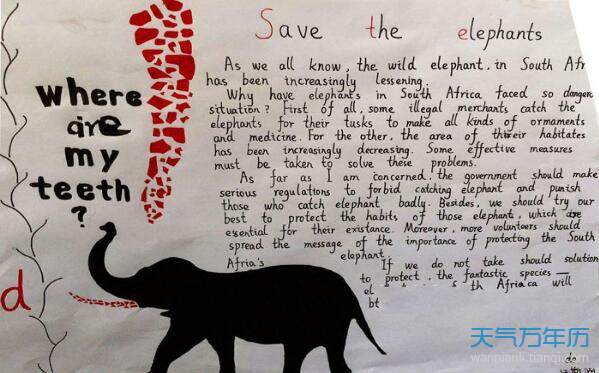 Save the elephants
where
are
my
teeth
?
As we all know, the wild elephant in South Afr
has been increasingly lessening.
Why have elephants in South Africa faced so dangero
situation? First of all, some illegal merchants catch the
elephants for their tusks to make all kinds of ornaments
and medicine. For the other, the area of their habitates
has been increasingly decreasing. Some effective measures
must be taken to solve these problems.
As far as I am concerned, the government should make
serious regulations to forbid catching elephant and punish
those who catch elephant badly. Besides, we should try our
best to protect the habits of those elephant, which are
essential for their existance. Moreover, more volunteers should
spread the message of the importance of protecting the South
Afria's elephant.
If we do not take should solution
to protect the fantastic species —
el th Afriaca will
bt
d
do
天气万年历
wannianli.tianqi.com